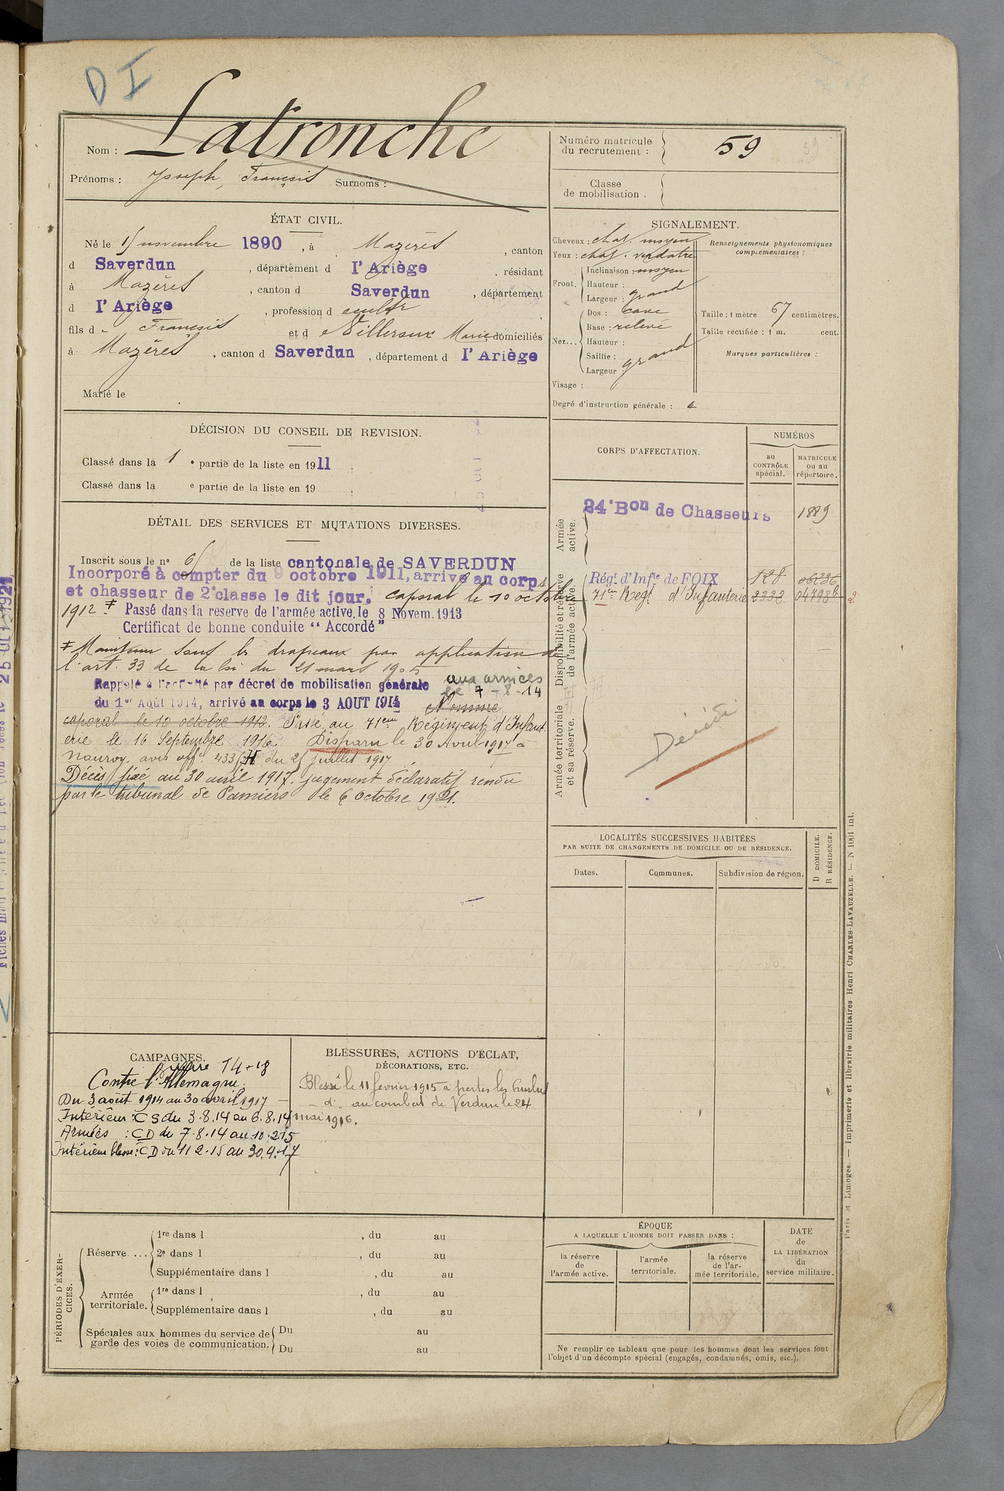 D I
Nom : Latronche
Prénoms : Joseph, François Surnoms :
Numéro matricule
du recrutement : 59
Classe
de mobilisation .
ÉTAT CIVIL.
Né le 15 novembre 1890, à Mazères, canton
d Saverdun, département d l'Ariège, résidant
à Mazères, canton d Saverdun, département
d l'Ariège, profession d cultr
fils d François et d Villeroux Marie domiciliés
à Mazères, canton d Saverdun, département d l'Ariège
Marié le
SIGNALEMENT.
Cheveux : chat. moyen
Yeux : chat. verdatre
Front. Inclinaison : moyen
Hauteur :
Largeur : grand
Nez... Dos : cave
Base : relevé
Hauteur :
Saillie :
Largeur : grand
Visage :
Renseignements physionomiques
complémentaires :
Taille : 1 mètre 67 centimètres.
Taille rectifiée : 1 m. cent.
Marques particulières :
Degré d'instruction générale : 2
DÉCISION DU CONSEIL DE REVISION.
Classé dans la 1 e partie de la liste en 1911
Classé dans la e partie de la liste en 19
DÉTAIL DES SERVICES ET MUTATIONS DIVERSES.
Inscrit sous le n° 65 de la liste cantonale de SAVERDUN
Incorporé à compter du 9 octobre 1911, arrivé au corps
et chasseur de 2e classe le dit jour. Caporal le 10 octobre
1912 ‡ Passé dans la réserve de l'armée active, le 8 Novem. 1913
Certificat de bonne conduite "Accordé"
‡ Maintenu sous les drapeaux par application de
l'art. 33 de la loi du 21 mars 1905
Rappelé à l'activité par décret de mobilisation générale aux armées
du 1er Août 1914, arrivé au corps le 3 AOUT 1914 le 7-8-14 Nommé
caporal le 10 octobre 1912. Passé au 71eme Régiment d'Infant
erie le 16 Septembre 1916. Disparu le 30 Avril 1917 à
Nauroy, avis offel 433/H du 25 juillet 1917
Décès fixé au 30 avril 1917. jugement déclaratif rendu
par le tribunal de Pamiers le 6 octobre 1921.
CORPS D'AFFECTATION.
NUMÉROS
au
CONTRÔLE
spécial.
MATRICULE
ou au
répertoire.
Armée
active.
24e Bon de Chasseurs 1889
Disponibilité et réserve
de l'armée active.
Régt d'Infie de FOIX 128 06236
71e Regt d'Infanterie 2332 04798
Armée territoriale
et sa réserve.
Décédé
LOCALITÉS SUCCESSIVES HABITÉES
PAR SUITE DE CHANGEMENTS DE DOMICILE OU DE RÉSIDENCE.
Dates. Communes. Subdivision de région.
D DOMICILE.
R RÉSIDENCE.
CAMPAGNES.
guerre 14-18
Contre l'Allemagne
Du 3 août 1914 au 30 avril 1917
Intérieur : CS du 3.8.14 au 6.8.14
Armées : CD du 7.8.14 au 10.2.15
Intérieur blessé : CD du 11.2.15 au 30.4.17
BLESSURES, ACTIONS D'ÉCLAT,
DÉCORATIONS, ETC.
Blessé le 11 février 1915 à Perthes les Hurlus
- d° - au combat de Verdun le 24
mai 1916.
PÉRIODES D'EXER-
CICES.
Réserve ....
1re dans l , du au
2e dans l , du au
Supplémentaire dans l , du au
Armée
territoriale.
1re dans l , du au
Supplémentaire dans l , du au
Spéciales aux hommes du service de
garde des voies de communication.
Du au
Du au
ÉPOQUE
A LAQUELLE L'HOMME DOIT PASSER DANS :
la réserve
de
l'armée active.
l'armée
territoriale.
la réserve
de l'ar-
mée territoriale.
DATE
de
LA LIBÉRATION
du
service militaire.
Ne remplir ce tableau que pour les hommes dont les services font
l'objet d'un décompte spécial (engagés, condamnés, omis, etc.).
Paris et Limoges. — Imprimerie et librairie militaires Henri CHARLES-LAVAUZELLE. — N 1001 int.